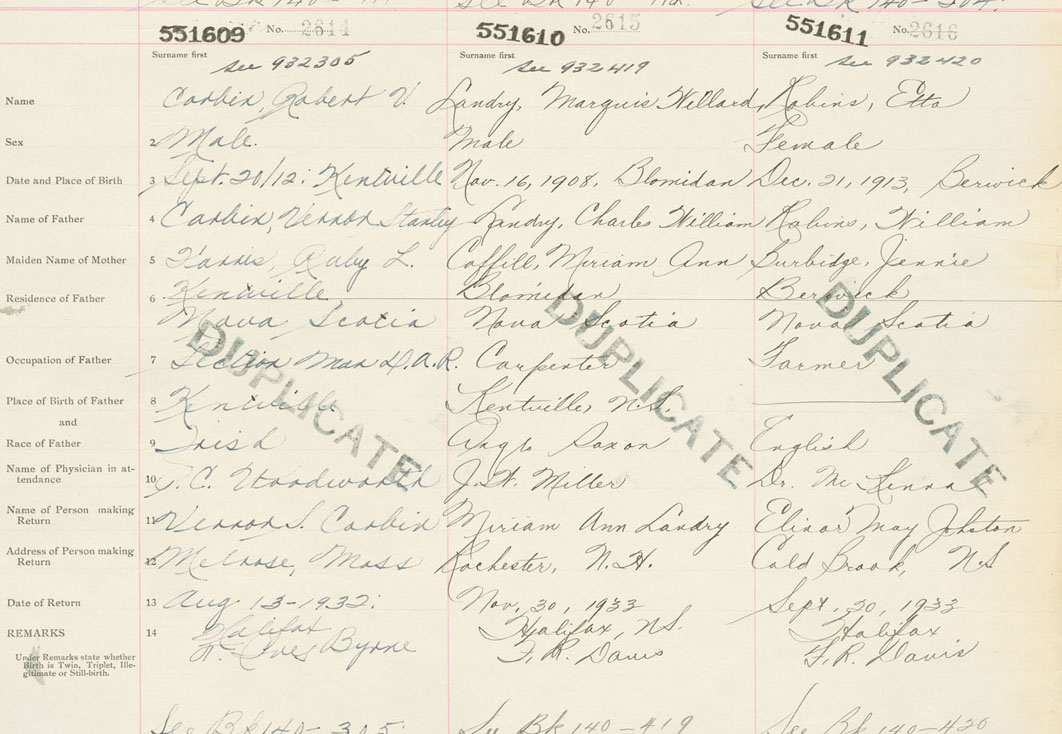 See Bk 140 -
See Bk 140 -
See Bk 140 - 304.
551609 No. 2614
551610 No. 2615
551611 No. 2616
Surname first
Surname first
Surname first
see 932305
see 932419
see 932420
Name
Corbin, Robert V.
Landry, Marquis Willard,
Robins, Etta
Sex
2 Male.
Male
Female
Date and Place of Birth
3 Sept. 20/12: Kentville
Nov. 16, 1908, Blomidan
Dec. 21, 1913, Berwick
Name of Father
4 Corbin, Vernon Stanley
Landry, Charles William
Robins, William
Maiden Name of Mother
5 Ruby L.
Coffill, Miriam Ann
Burbidge, Jennie
Residence of Father
6 Kentville
Blomidan
Berwick
Nova Scotia
Nova Scotia
Nova Scotia
Occupation of Father
7 Section Man D.A.R.
Carpenter
Farmer
Place of Birth of Father
8 Kentville
Kentville, N.S.
and
Race of Father
9 Irish
Anglo Saxon
English
Name of Physician in at-
tendance
10 Woodworth
J. W. Miller
Dr. McKenna
Name of Person making
Return
11 Vernon S. Corbin
Miriam Ann Landry
Elinor May Johston
Address of Person making
Return
12 Melrose, Mass
Rochester, N.H.
Cold Brook, N.S
Date of Return
13 Aug 13-1932.
Nov, 30, 1933
Sept. 30, 1933
REMARKS
14 Halifax
Halifax, N.S.
Halifax
Byrne
F. R. Davis
F. R. Davis
Under Remarks state whether
Birth is Twin, Triplet, Ille-
gitimate or Still-birth.
DUPLICATE
DUPLICATE
DUPLICATE
See Bk 140 - 305.
See Bk 140 - 419
See Bk 140 - 420